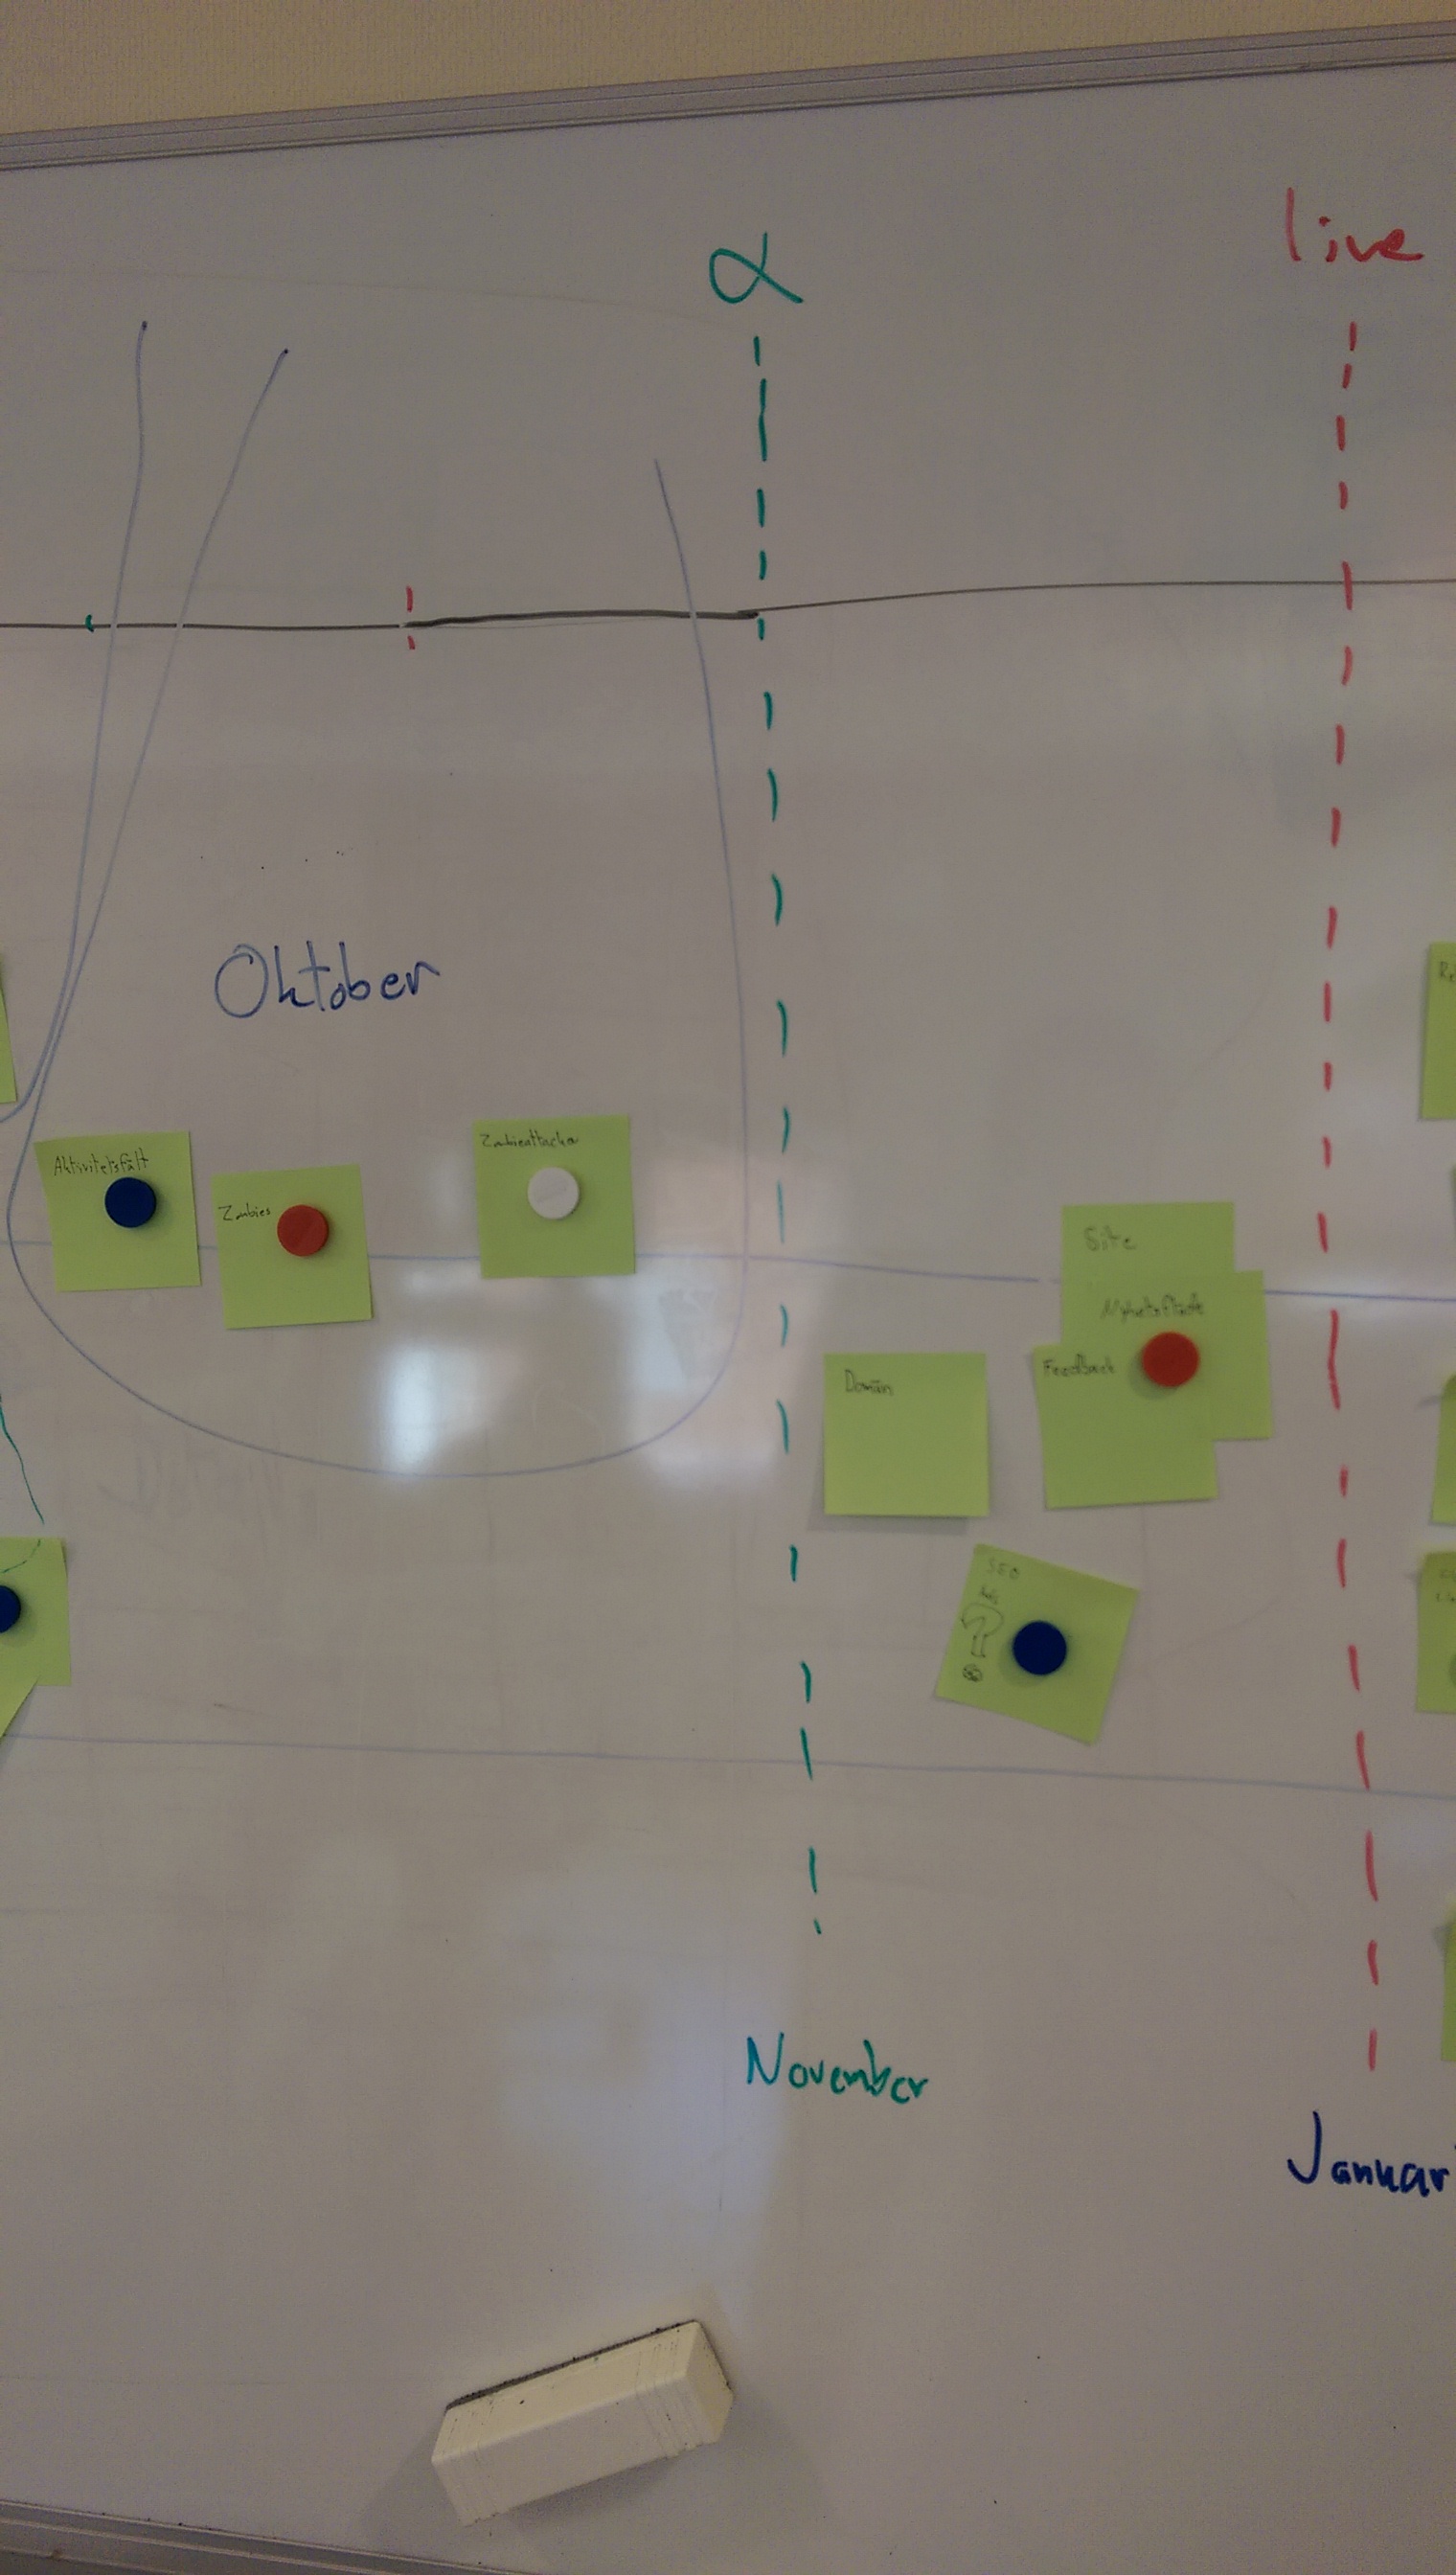 α
live
Oktober
Aktivitetsfält
Zombies
Zombieattacker
Site
Nyhetsflöde
Feedback
Domän
SEO
November
Januar